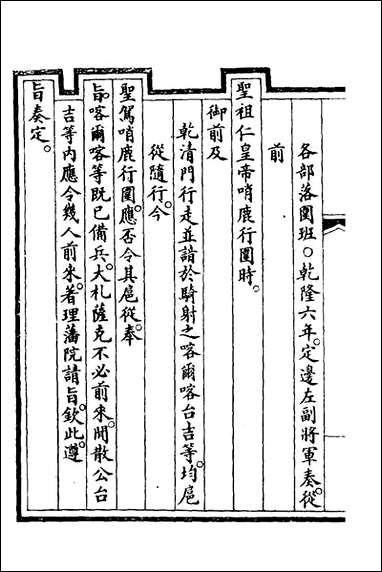 各部落圍班〇乾隆六年。定邊左副將軍奏。從
前
聖祖仁皇帝哨鹿行圍時。
御前及
乾清門行走並諳於騎射之喀爾喀台吉等。均扈
從隨行。今
聖駕哨鹿行圍。應否令其扈從。奉
旨。喀爾喀等既已備兵。大札薩克不必前來。閒散公台
吉等內應令幾人前來。著理藩院請旨。欽此。遵
旨奏定。